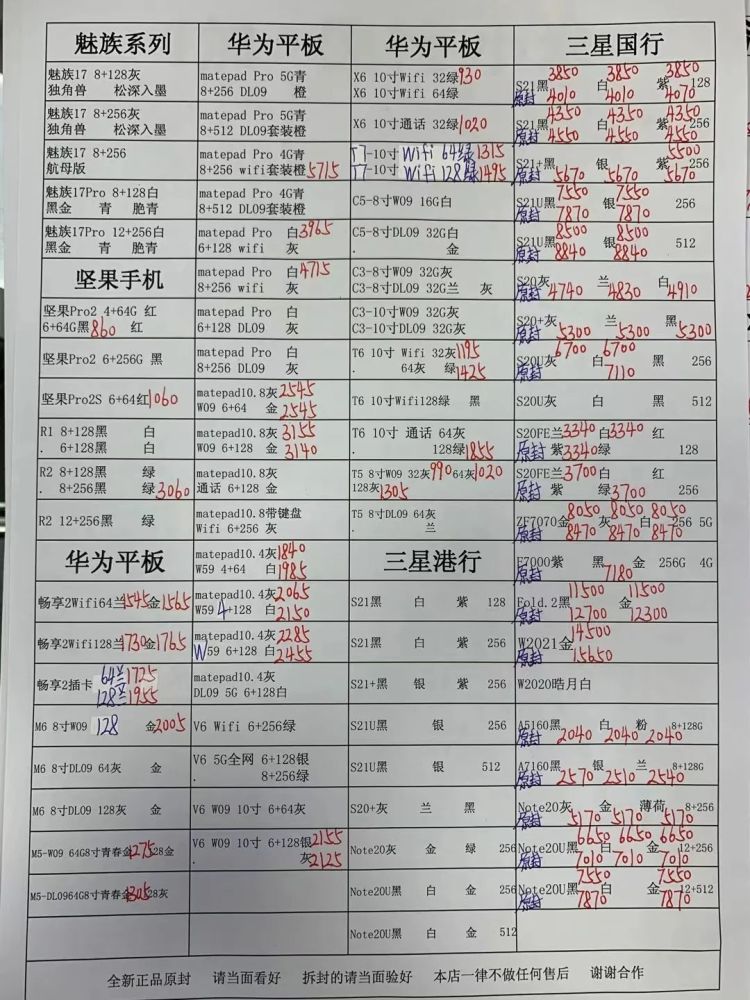 魅族系列
魅族17 8+128灰
独角兽 松深入墨
魅族17 8+256灰
独角兽 松深入墨
魅族17 8+256
航母版
魅族17Pro 8+128白
黑金 青 脆青
魅族17Pro 12+256白
黑金 青 脆青
坚果手机
坚果Pro2 4+64G 红
6+64G黑860 红
坚果Pro2 6+256G 黑
坚果Pro2S 6+64红1060
R1 8+128黑 白
. 6+128黑 白
R2 8+128黑 绿
. 8+256黑 绿3060
R2 12+256黑 绿
华为平板
畅享2Wifi64兰1545金1565
畅享2Wifi128兰1730金1765
畅享2插卡 64兰1725
128兰1955
M6 8寸W09 128 金2005
M6 8寸DL09 64灰 金
M6 8寸DL09 128灰 金
M5-W09 64G8寸青春金1275 28金
M5-DL0964G8寸青春金1305 28灰
华为平板
matepad Pro 5G青
8+256 DL09 橙
matepad Pro 5G青
8+512 DL09套装橙
matepad Pro 4G青
8+256 wifi套装橙5715
matepad Pro 4G青
8+512 DL09套装橙
matepad Pro 白3965
6+128 wifi 灰
matepad Pro 白4715
8+256 wifi 灰
matepad Pro 白
6+128 DL09 灰
matepad Pro 白
8+256 DL09 灰
matepad10.8灰2545
W09 6+64 金2545
matepad10.8灰3155
W09 6+128 金3140
matepad10.8灰
通话 6+128 金
matepad10.8带键盘
Wifi 6+256 灰
matepad10.4灰1840
W59 4+64 白1985
matepad10.4灰2065
W59 4+128 白2150
matepad10.4灰2285
W59 6+128 白2455
matepad10.4灰
DL09 5G 6+128白
V6 Wifi 6+256绿
V6 5G全网 6+128银
. 8+256绿
V6 W09 10寸 6+64灰
V6 W09 10寸 6+128银2155
. 灰2125
华为平板
X6 10寸Wifi 32绿930
X6 10寸Wifi 64绿
X6 10寸通话 32绿1020
T7-10寸 Wifi 64绿1315
T7-10寸 Wifi 128绿1495
C5-8寸W09 16G白
C5-8寸DL09 32G白
. 金
C3-8寸W09 32G灰
C3-8寸DL09 32G兰 灰
C3-10寸W09 32G灰
C3-10寸DL09 32G灰
T6 10寸 Wifi 32灰1195
. 64灰 绿1425
T6 10寸Wifi128绿 黑
T6 10寸 通话 64灰
. 128绿1855
T5 8寸W09 32灰990 64灰1020
128灰1305
T5 8寸DL09 64灰
. 兰
三星港行
S21黑 白 紫 128
S21黑 白 紫 256
S21+黑 银 紫 256
S21U黑 银 256
S21U黑 银 512
S20+灰 兰 黑
Note20灰 金 绿 256
Note20U黑 白 金 256
Note20U黑 白 金 512
三星国行
3850 3850 3850
S21黑 白 紫 128
原封 4010 4010 4070
4350 4350 4350
S21黑 白 紫 256
原封 4550 4550 4550
5500
S21+黑 银 紫 256
原封 5670 5670 5670
7550 7550
S21U黑 银 256
原封 7870 7870
8500 8500
S21U黑 银 512
原封 8840 8840
S20灰 兰 白
原封 4740 4830 4910
S20+灰 兰 黑
原封 5300 5300 5300
6700 6700
S20U灰 白 黑 256
原封 7110
S20U灰 白 黑 512
S20FE兰3340白3340 红
原封 紫3340绿 128
S20FE兰3700白 红
原封 紫 绿3700 256
8050 8050 8050
ZF7070金 灰 白 256 5G
原封 8470 8470 8470
F7000紫 黑 金 256G 4G
原封 7180
11500 11500
Fold.2黑 金
原封 12700 12300
14500
W2021金
原封 15650
W2020皓月白
A5160黑 白 粉 8+128G
原封 2040 2040 2040
A7160黑 银 兰 8+128G
原封 2570 2510 2540
Note20灰 金 薄荷 8+256
原封 5170 5170 5170
6650 6650 6650
Note20U黑 白 金 12+256
原封 7010 7010 7010
7550 7550
Note20U黑 白 金 12+512
原封 7870 7870
全新正品原封 请当面看好 拆封的请当面验好 本店一律不做任何售后 谢谢合作